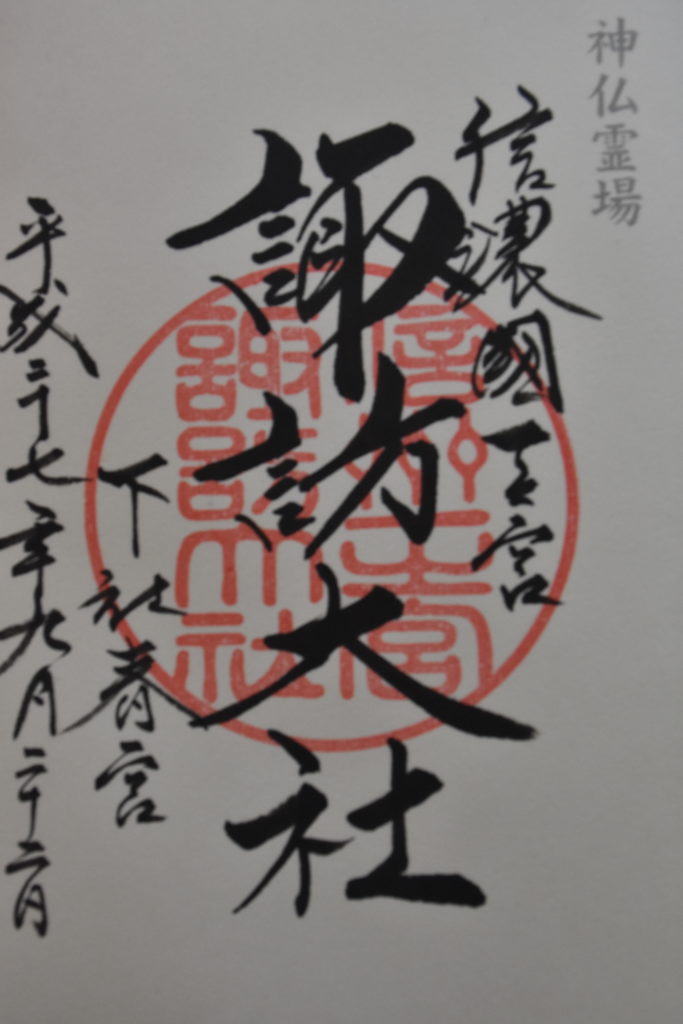 神仏霊場
信濃國一之宮
諏訪大社
下社春宮
平成二十七年九月二十二日
諏訪大社